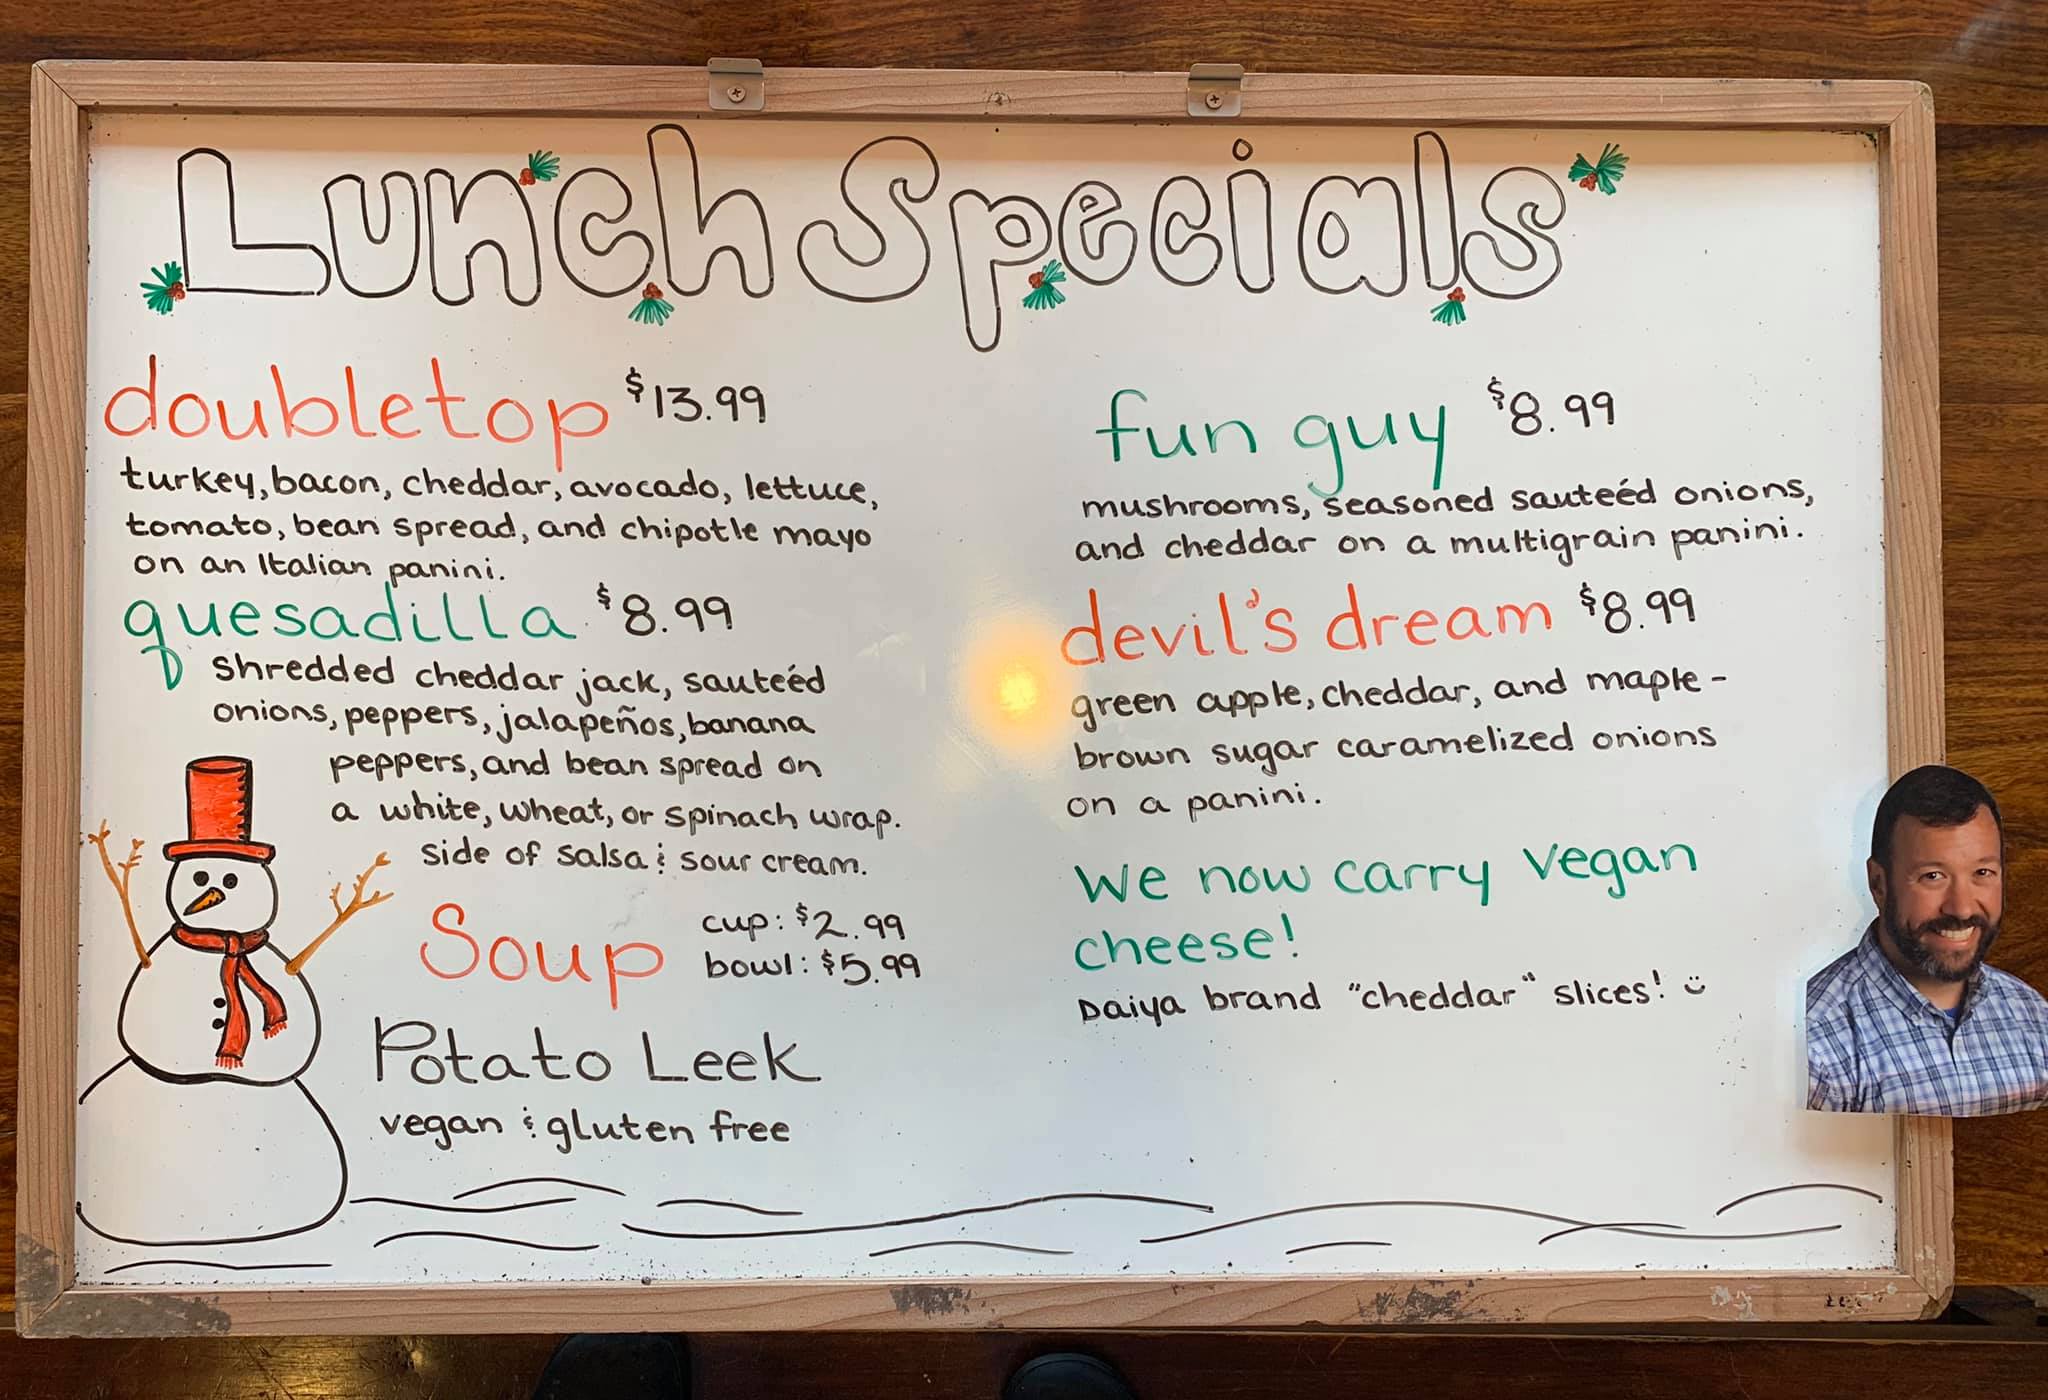 Lunch Specials
doubletop $13.99
turkey, bacon, cheddar, avocado, lettuce,
tomato, bean spread, and chipotle mayo
on an Italian panini.
quesadilla $8.99
shredded cheddar jack, sauteéd
onions, peppers, jalapeños, banana
peppers, and bean spread on
a white, wheat, or spinach wrap.
side of salsa & sour cream.
Soup cup: $2.99
bowl: $5.99
Potato Leek
vegan & gluten free
fun guy $8.99
mushrooms, seasoned sauteéd onions,
and cheddar on a multigrain panini.
devil's dream $8.99
green apple, cheddar, and maple-
brown sugar caramelized onions
on a panini.
We now carry vegan
cheese!
Daiya brand "cheddar" slices! :)